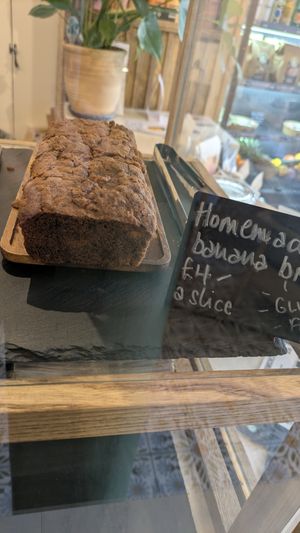 Homemad
banana b
£4 -
a slice
- GL